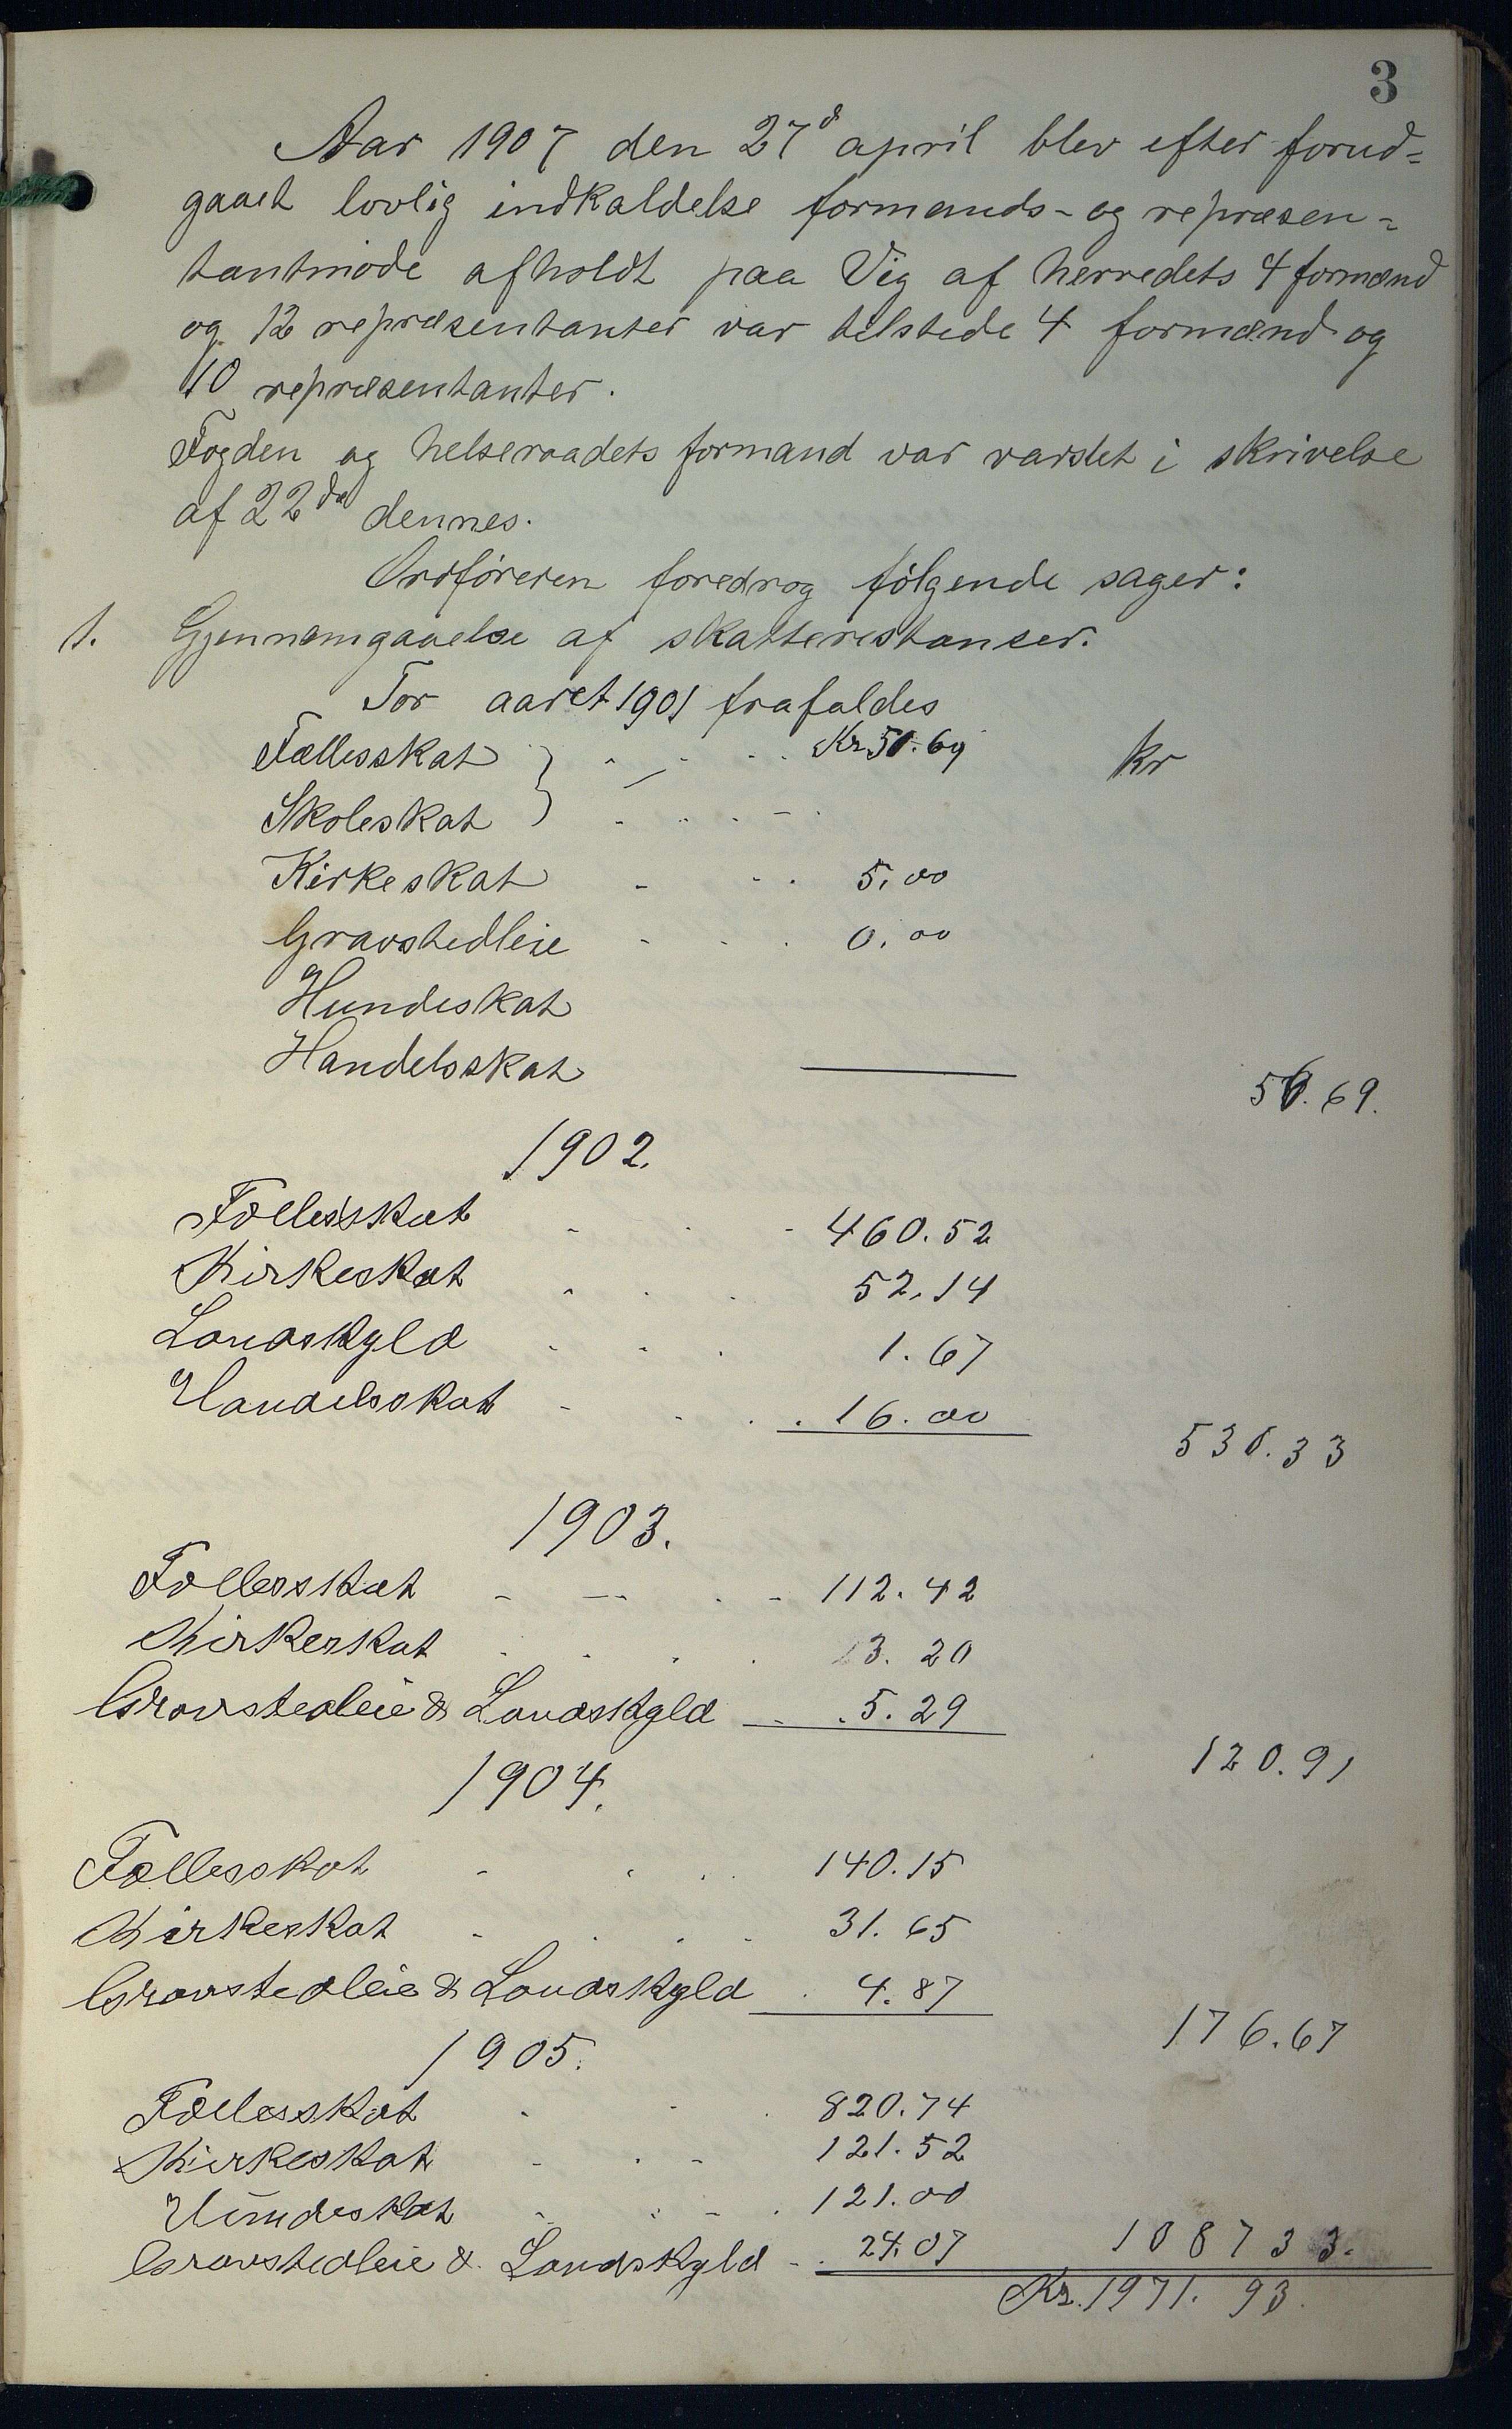 3
Aar 1907 den 27d april blev efter forud=
gaaet lovlig indkaldelse formands- og repræsen=
tantmöde afholdt paa Vig af herredets 4 formænd
og 12 repræsentanter var tilstede 4 formænd og
10 repræsentanter.
Fogden og helseraadets formand var varslet i skrivelse
af 22de dennes.
Ordföreren foredrog fölgende sager:
1. Gjennemgaaelse af skatterestanser.
For aaret 1901 frafaldes
Fællesskat } . . . Kr. 51.69 kr
Skoleskat } . . . .
Kirkeskat - - . 5.00
Gravstedleie - - . 0.00
Hundeskat
Handelsskat
56.69.
1902.
Fællesskat - . - 460.52
Kirkeskat . . . 52.14
Landskyld . . . 1.67
Handelsskat - . . . 16.00
530.33
1903.
Fællesskat - - . - 112.42
Kirkeskat . . . . 3.20
Gravstedleie & Landskyld - . 5.29
120.91
1904.
Fællesskat - . . . 140.15
Kirkeskat - . . . 31.65
Gravstedleie & Landskyld . 4.87
176.67
1905.
Fællesskat . - . 820.74
Kirkeskat - . - 121.52
Hundeskat - . - . 121.00
Gravstedleie & Landskyld - . 24.07 1087 33.
Kr. 1971.93.